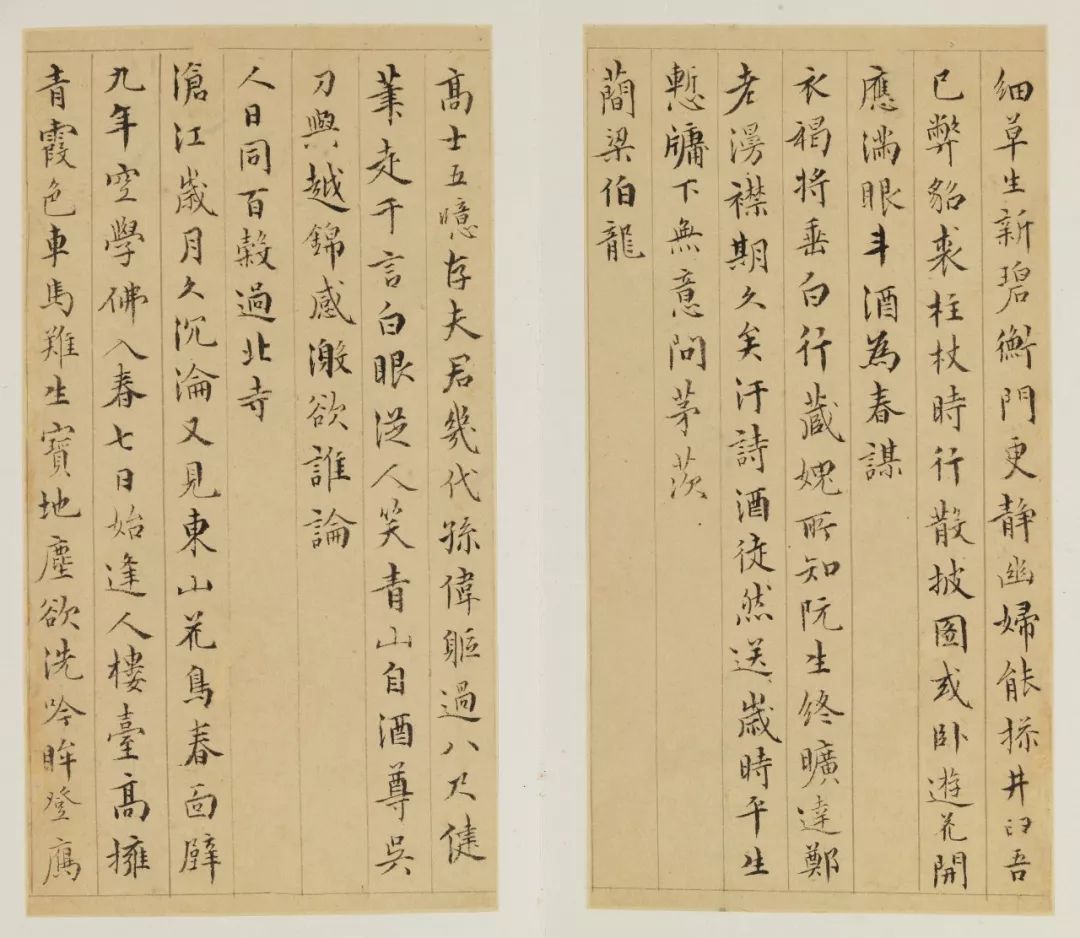 細草生新碧衡門更静幽婦能操井臼吾
已弊貂裘柱杖時行散披圖或卧遊花開
應滿眼斗酒為春謀
衣褐将垂白行藏媿所知阮生終曠達鄭
老漫襟期久矣汙詩酒徒然送歲時平生
慙牗下無意問茅茨
蕳梁伯龍
高士五噫存夫君幾代孫偉軀過八尺健
筆走千言白眼從人笑青山自酒尊吳
刀與越錦感激欲誰論
人日同百穀過北寺
滄江歲月久沉淪又見東山花鳥春面壁
九年空學佛入春七日始逢人樓臺高擁
青霞色車馬難生寶地塵欲洗吟眸登鴈